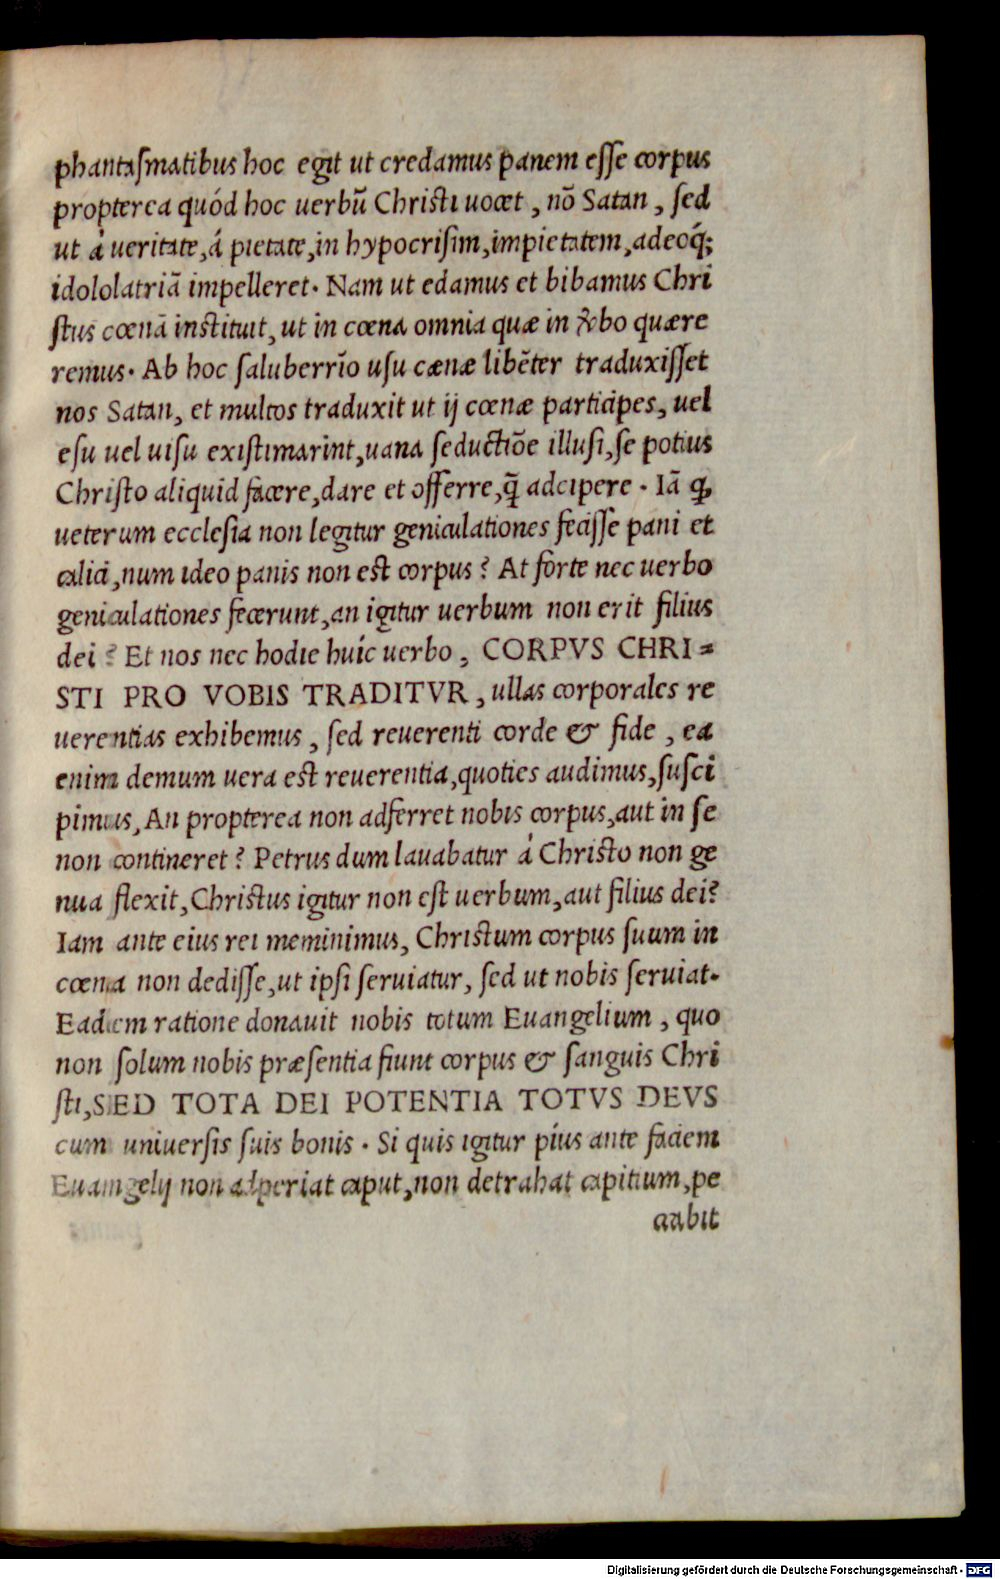 phantasmatibus hoc egit ut credamus panem esse corpus
propterea quód hoc uerbū Christi uocet, nō Satan, sed
ut à ueritate, á pietate, in hypocrisim, impietatem, adeoq́;
idololatriā impelleret. Nam ut edamus et bibamus Chri
stus cœnā instituit, ut in cœna omnia quæ in ꝟbo quære
remus. Ab hoc saluberrīo usu cænæ libēter traduxisset
nos Satan, et multos traduxit ut ij cœnæ participes, uel
esu uel uisu existimarint, uana seductiōe illusi, se potius
Christo aliquid facere, dare et offerre, q̃ adcipere. Iā ꝙ
ueterum ecclesia non legitur geniculationes fecisse pani et
calici, num ideo panis non est corpus? At forte nec uerbo
geniculationes fecerunt, an igitur uerbum non erit filius
dei? Et nos nec hodie huíc uerbo, CORPVS CHRI=
STI PRO VOBIS TRADITVR, ullas corporales re
uerentias exhibemus, sed reuerenti corde & fide, ea
enim demum uera est reuerentia, quoties audimus, susci
pimus, An propterea non adferret nobis corpus, aut in se
non contineret? Petrus dum lauabatur à Christo non ge
nua flexit, Christus igitur non est uerbum, aut filius dei?
Iam ante eius rei meminimus, Christum corpus suum in
cœna non dedisse, ut ipsi seruiatur, sed ut nobis seruiat.
Eadem ratione donauit nobis totum Euangelium, quo
non solum nobis præsentia fiunt corpus & sanguis Chri
sti, SED TOTA DEI POTENTIA TOTVS DEVS
cum uniuersis suis bonis. Si quis igitur píus ante faciem
Euamgelij non adperiat caput, non detrahat capitium, pe
ccabit
Digitalisierung gefördert durch die Deutsche Forschungsgemeinschaft - DFG